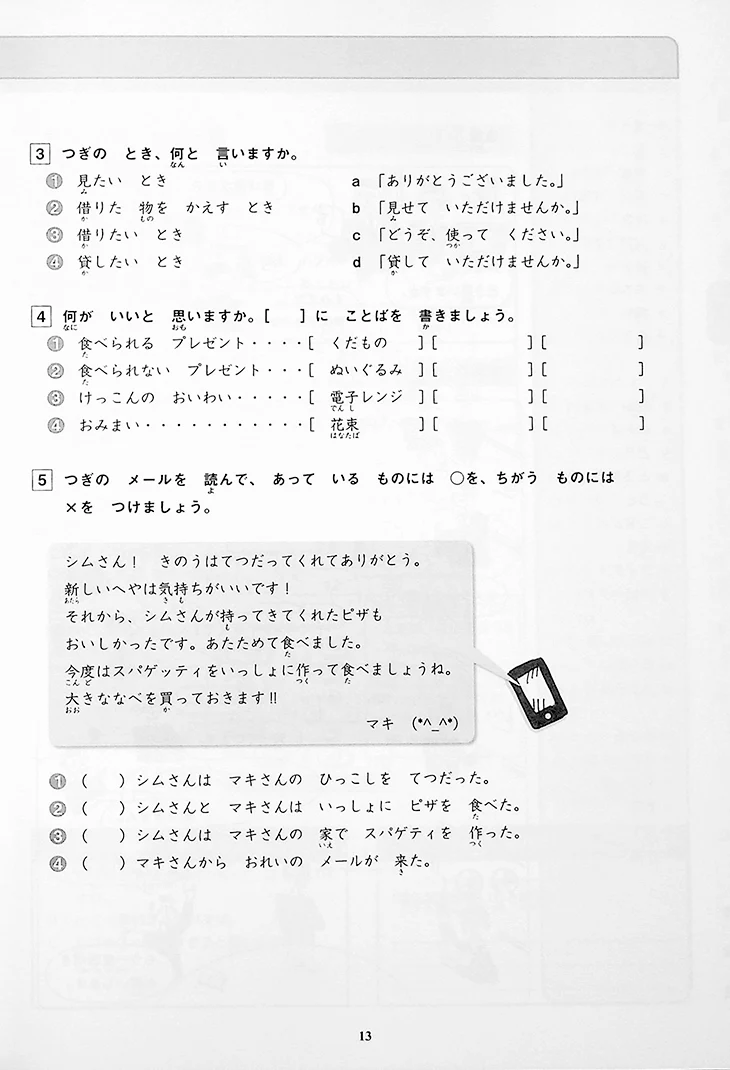 3 つぎの とき、何と 言いますか。
なん い
① 見たい とき a 「ありがとうございました。」
み
② 借りた 物を かえす とき b 「見せて いただけませんか。」
か もの み
③ 借りたい とき c 「どうぞ、使って ください。」
か つか
④ 貸したい とき d 「貸して いただけませんか。」
か か
4 何が いいと 思いますか。[ ]に ことばを 書きましょう。
なに おも か
① 食べられる プレゼント・・・・[ くだもの ][ ][ ]
た
② 食べられない プレゼント・・・[ ぬいぐるみ ][ ][ ]
た
③ けっこんの おいわい・・・・・[ 電子レンジ ][ ][ ]
でん し
④ おみまい・・・・・・・・・・・[ 花束 ][ ][ ]
はなたば
5 つぎの メールを 読んで、 あって いる ものには ○を、ちがう ものには
よ
×を つけましょう。
シムさん! きのうはてつだってくれてありがとう。
新しいへやは気持ちがいいです!
あたら き も
それから、シムさんが持ってきてくれたピザも
も
おいしかったです。あたためて食べました。
た
今度はスパゲッティをいっしょに作って食べましょうね。
こん ど つく た
大きななべを買っておきます!!
おお か
マキ (*^_^*)
① ( )シムさんは マキさんの ひっこしを てつだった。
② ( )シムさんと マキさんは いっしょに ピザを 食べた。
た
③ ( )シムさんは マキさんの 家で スパゲティを 作った。
いえ つく
④ ( )マキさんから おれいの メールが 来た。
き
13